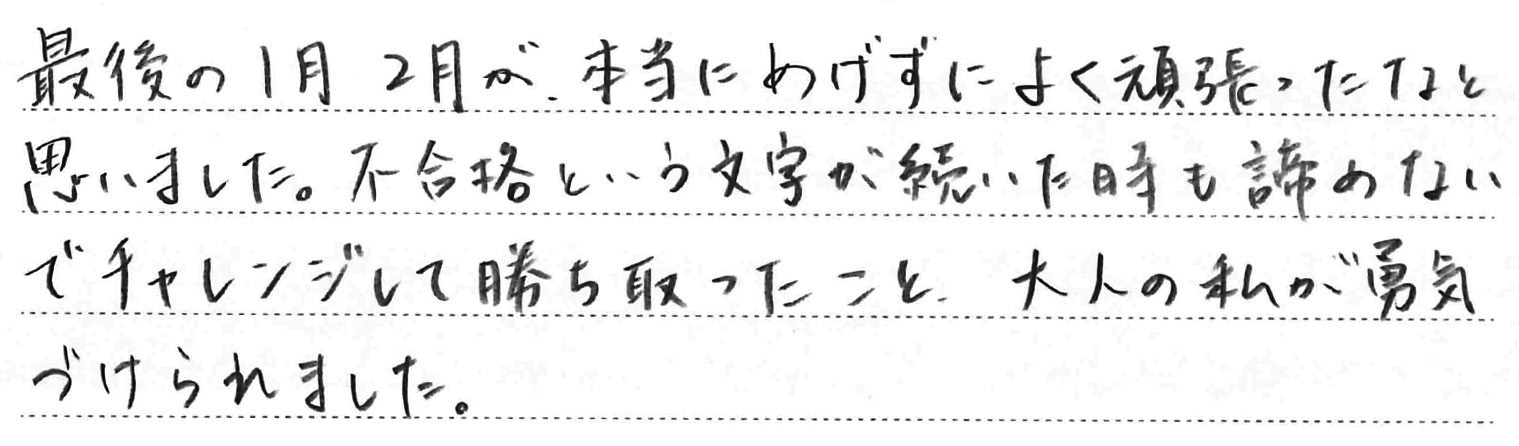 最後の1月 2月が、本当にめげずによく頑張ったなと
思いました。不合格という文字が続いた時も諦めない
でチャレンジして勝ち取ったこと、大人の私が勇気
づけられました。